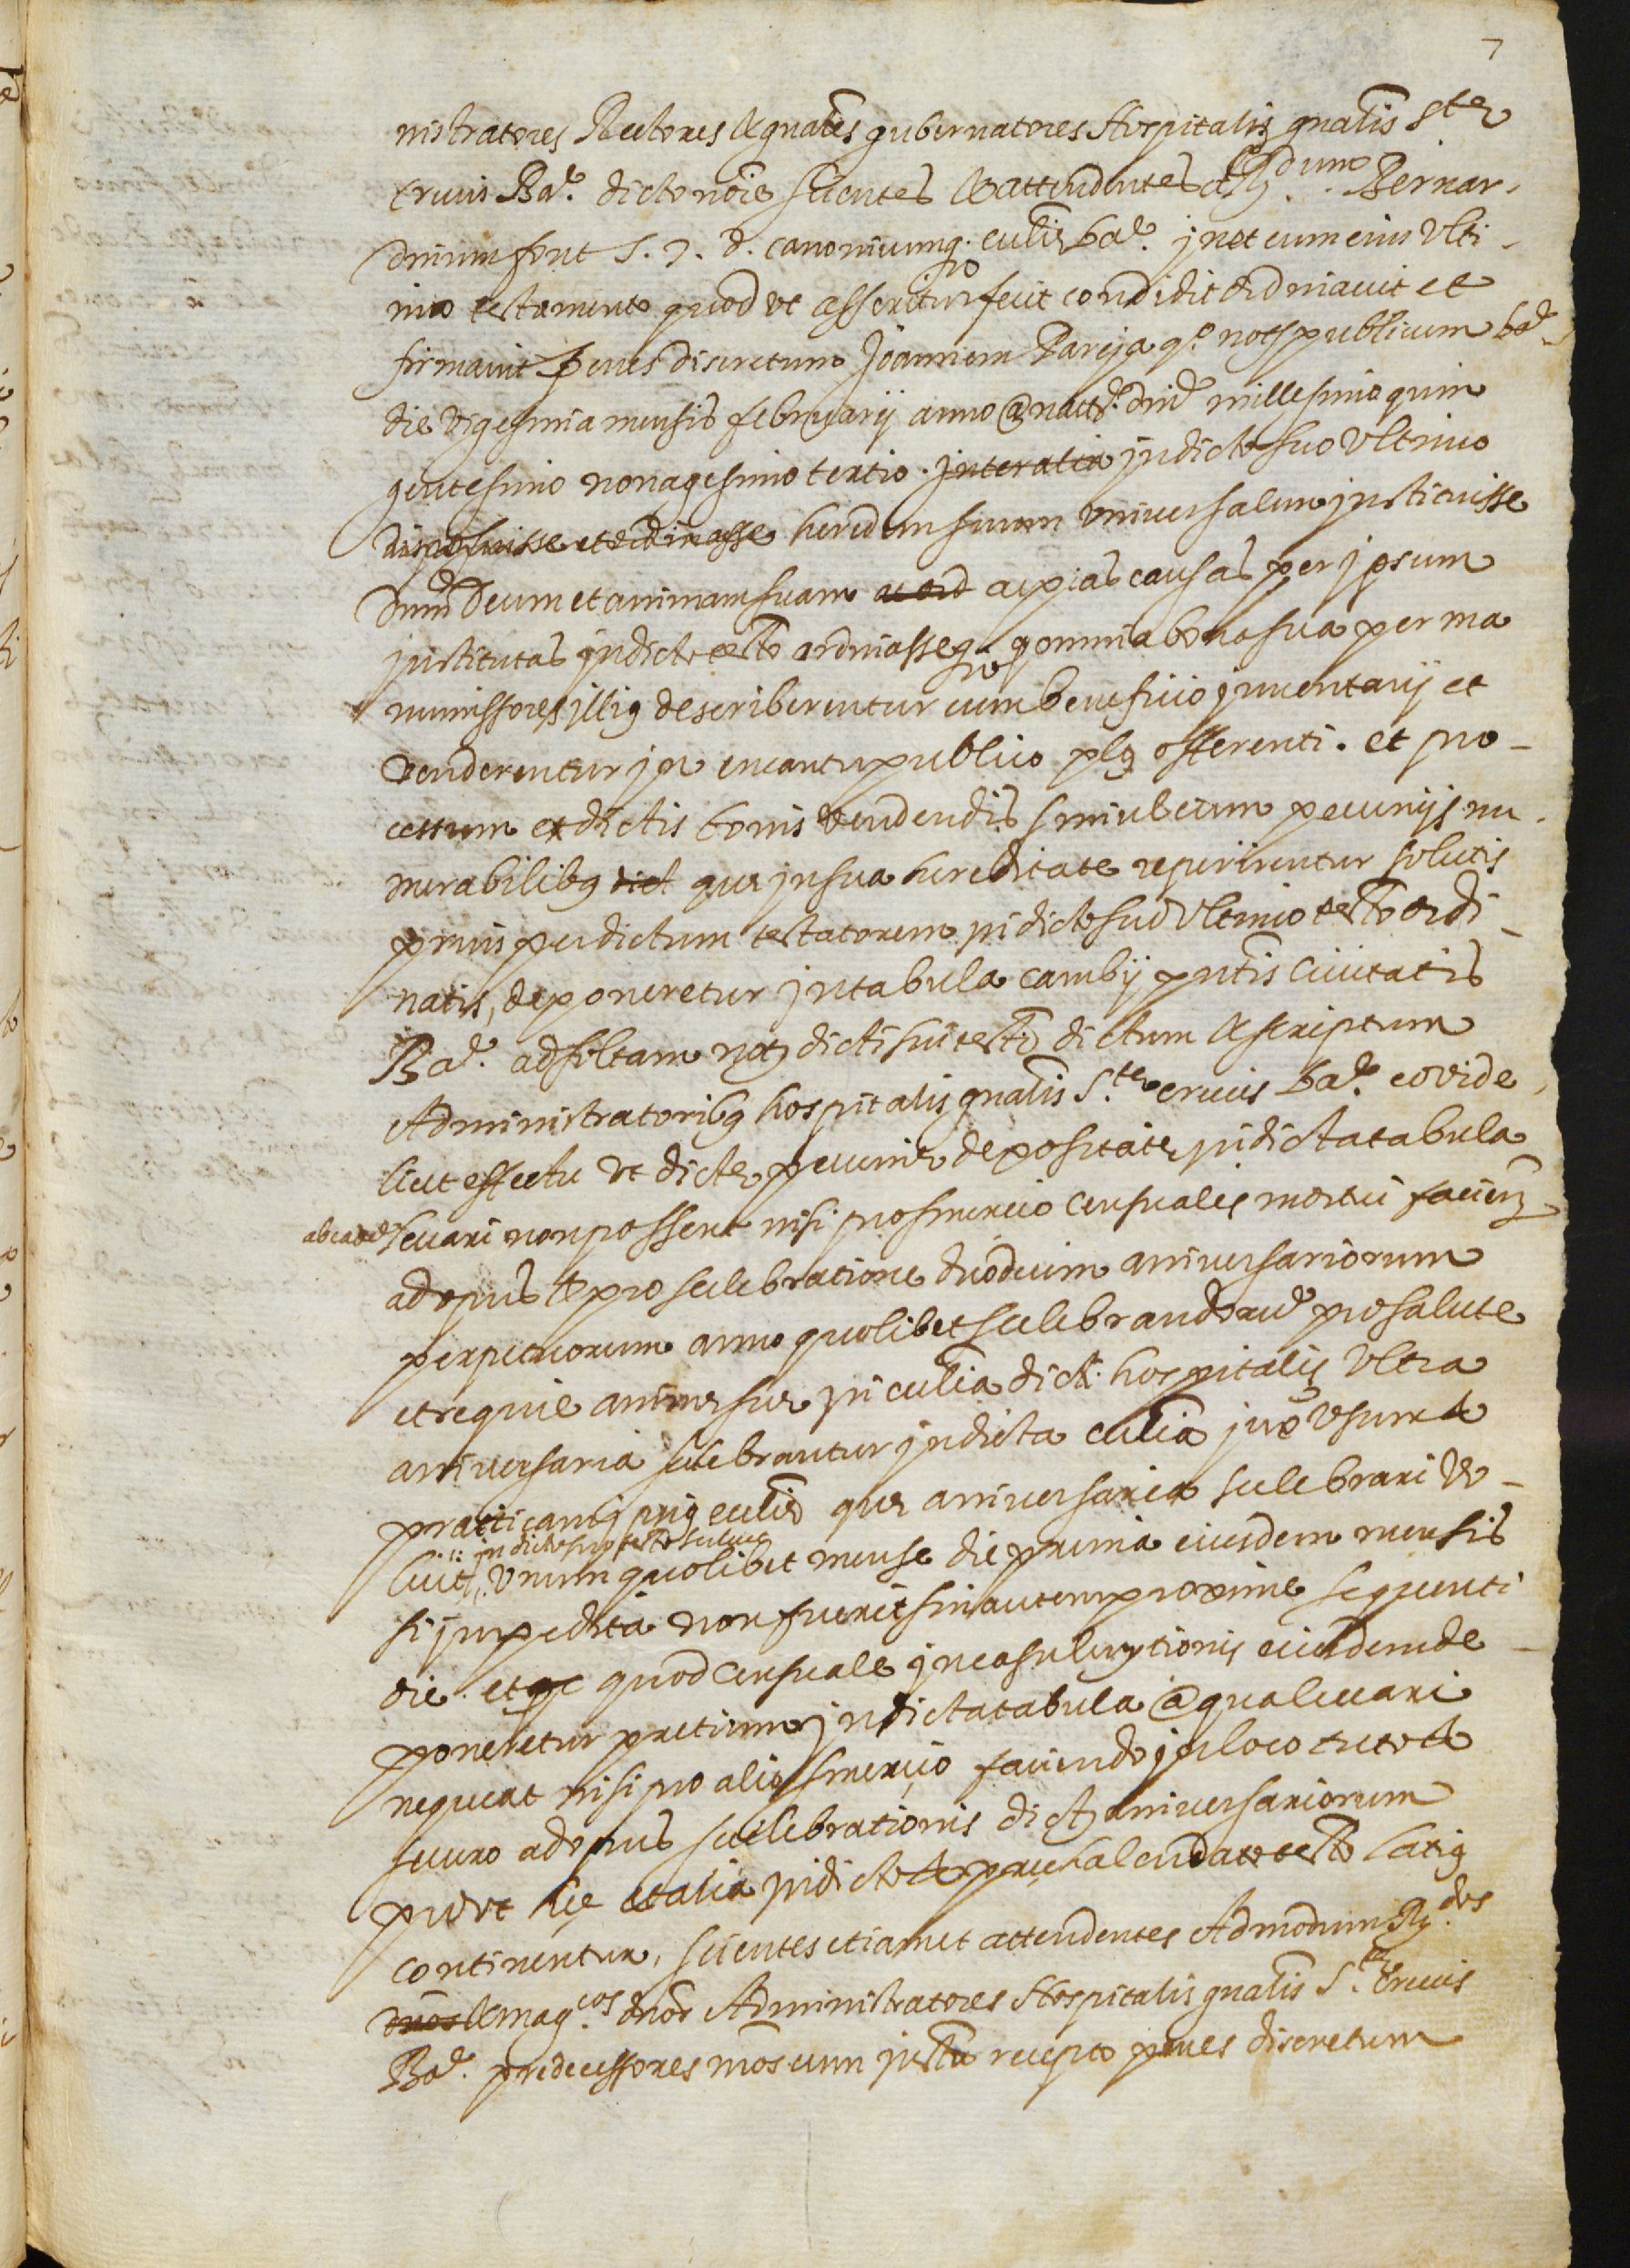 7
nistratores Rectores & gnales gubernatores Hospitalis gnalis Ste
crucis Bar. dicto noie scientes & attendentes Rdum Bernar-
dinum font S. J. d. canonicumq. eccliæ bar. in et cum eius Vlti-
mo testamento quod vt asseritur fecit condidit ordinauit et
firmauit penes discretum Joannem Pareja q.º nots publicum bar.
die vigesima mensis februarij anno @ natte. dni millesimo quin
gentesimo nonagesimo tertio. inter alia in dicto suo Vltimo
disposuisse et ordinasse heredem suum vniuersalem instituisse
dnum Deum et animam suam ac ad ac pias causas per ipsum
institutas in dicto testo ordinasseq. q omnia bona sua per ma
numissores illiq describerentur cum beneficio inuentarij et
venderentur in encantu publico plq offerenti. et pro-
cessum ex dictis bonis vendendis simul cum pecunijs nu-
merabilibq dict que in sua hereditate reperirentur solutis
prius per dictum testatorem in dicto suo Vltimo testo ordi-
natis, deponeretur in tabula cambij pntis Ciuitatis
Bar. ad soltam not dicti sui testi dictum & scriptum
Administratoribq hospitalis gnalis S.te crucis bar. eo vide-
licet effectu vt dicte pecunie depositate in dicta tabula
ab eadem leuari non possent nisi pro smercio Censualis mortui faciend
ad opus & pro selebratione duodecim aniuersariorum
perpetuorum anno quolibet selebrandorum pro salute
et requie anime sue in ecclia dicti hospitalis Vltra
aniuersaria selebrantur in dicta ecclia iux vsum &
praticam ipsiq ecclie que aniuersaria selebrari vo-
luit in dicto suo testo Vnum quolibet mense die prima eiusdem mensis
si impedita non fuerit sin autem proxime sequenti
die. et qe quod Censuale in casu luytionis eiusdem de-
poneretur pretium in dicta tabula @ qua leuari
nequeat nisi pro alio smercio faciendo in loco tuto &
securo ad opus selebrationis dict aniuersariorum
prout hec et alia in dicto & precalendato testo latiq
continentur, scientes etiam et attendentes Admodum Rdos
dnos & mag.cos dnos Administratores Hospitalis gnalis S.te Crucis
Bar. predecessores nros cum instro recepto penes discretum